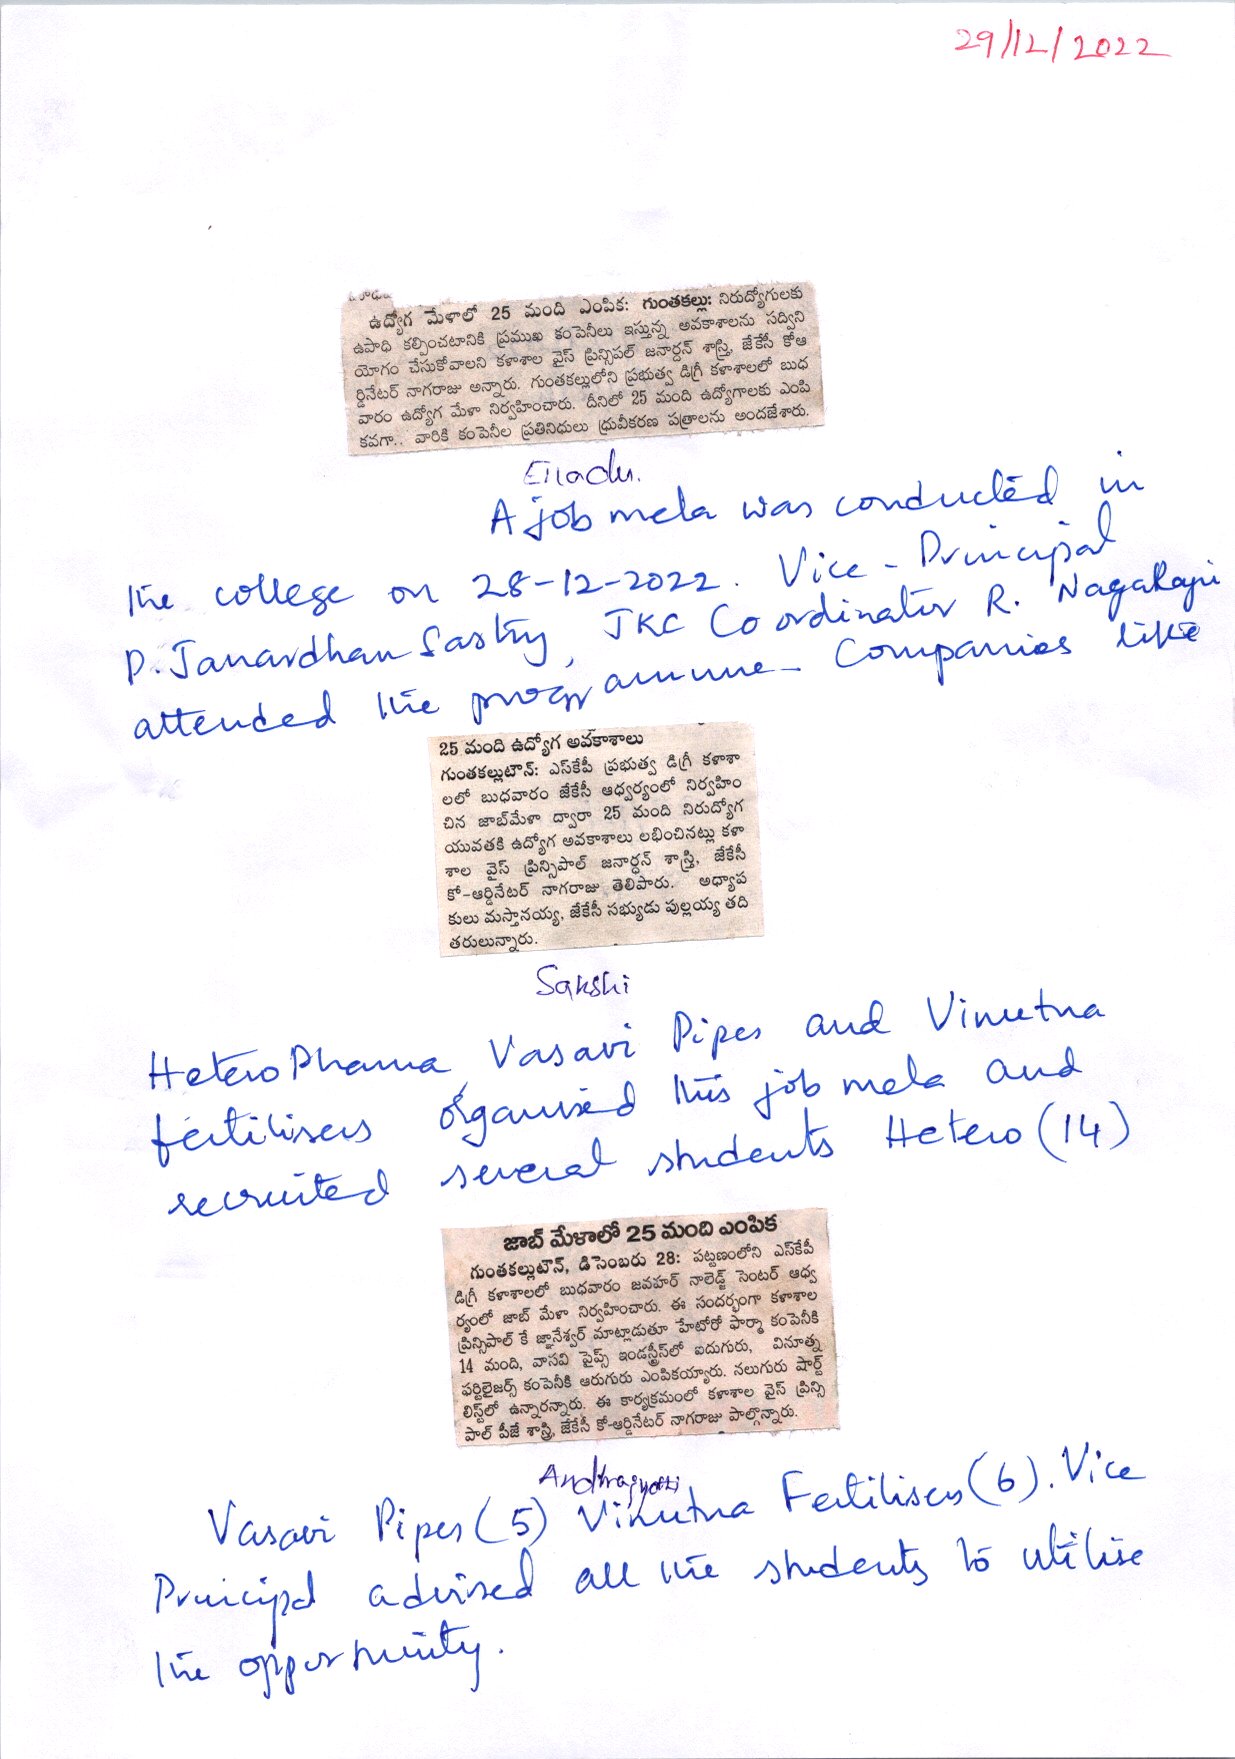 29/12/2022
ఉద్యోగ మేళాలో 25 మంది ఎంపిక: గుంతకల్లు: నిరుద్యోగులకు
ఉపాధి కల్పించటానికి ప్రముఖ కంపెనీలు ఇస్తున్న అవకాశాలను సద్విని
యోగం చేసుకోవాలని కళాశాల వైస్ ప్రిన్సిపల్ జనార్దన్ శాస్త్రి, జేకేసీ కోఆ
ర్డినేటర్ నాగరాజు అన్నారు. గుంతకల్లులోని ప్రభుత్వ డిగ్రీ కళాశాలలో బుధ
వారం ఉద్యోగ మేళా నిర్వహించారు. దీనిలో 25 మంది ఉద్యోగాలకు ఎంపి
కవగా.. వారికి కంపెనీల ప్రతినిధులు ధ్రువీకరణ పత్రాలను అందజేశారు.
Enadu.
A job mela was conducted in
the college on 28-12-2022. Vice-Principal
P. Janardhan Sastry, JKC Coordinator R. NagaRaju
attended the programme. Companies like
25 మంది ఉద్యోగ అవకాశాలు
గుంతకల్లుటౌన్: ఎస్‌కేపీ ప్రభుత్వ డిగ్రీ కళాశా
లలో బుధవారం జేకేసీ ఆధ్వర్యంలో నిర్వహిం
చిన జాబ్‌మేళా ద్వారా 25 మంది నిరుద్యోగ
యువతకి ఉద్యోగ అవకాశాలు లభించినట్లు కళా
శాల వైస్ ప్రిన్సిపాల్ జనార్ధన్ శాస్త్రి, జేకేసీ
కో-ఆర్డినేటర్ నాగరాజు తెలిపారు. అధ్యాప
కులు మస్తానయ్య, జేకేసీ సభ్యుడు పుల్లయ్య తది
తరులున్నారు.
Sakshi
Hetero Pharma, Vasavi Pipes and Vinutna
fertilisers organised this job mela and
recruited several students Hetero (14)
జాబ్ మేళాలో 25 మంది ఎంపిక
గుంతకల్లుటౌన్, డిసెంబరు 28: పట్టణంలోని ఎస్‌కేపీ
డిగ్రీ కళాశాలలో బుధవారం జవహర్ నాలెడ్జ్ సెంటర్ ఆధ్వ
ర్యంలో జాబ్ మేళా నిర్వహించారు. ఈ సందర్భంగా కళాశాల
ప్రిన్సిపాల్ కే జ్ఞానేశ్వర్ మాట్లాడుతూ హేటోరో ఫార్మా కంపెనీకి
14 మంది, వాసవి పైప్స్ ఇండస్ట్రీస్‌లో ఐదుగురు, వినూత్న
ఫర్టిలైజర్స్ కంపెనీకి ఆరుగురు ఎంపికయ్యారు. నలుగురు షార్ట్
లిస్ట్‌లో ఉన్నారన్నారు. ఈ కార్యక్రమంలో కళాశాల వైస్ ప్రిన్సి
పాల్ పీజే శాస్త్రి, జేకేసీ కో-ఆర్డినేటర్ నాగరాజు పాల్గొన్నారు.
Andhrajyothi
Vasavi Pipes (5) Vinutna Fertilisers (6). Vice
Principal advised all the students to utilise
the opportunity.